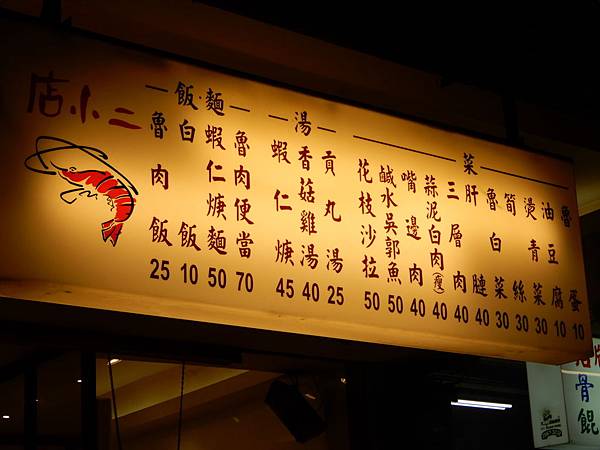 店小二
飯·麵
魯肉飯 25
白飯 10
蝦仁焿麵 50
魯肉便當 70
湯
蝦仁焿 45
香菇雞湯 40
貢丸湯 25
菜
花枝沙拉 50
鹹水吳郭魚 50
嘴邊肉 40
蒜泥白肉(瘦) 40
三層肉 40
肝腱 40
魯白菜 30
筍絲 30
燙青菜 30
油豆腐 10
魯蛋 10
骨
餛